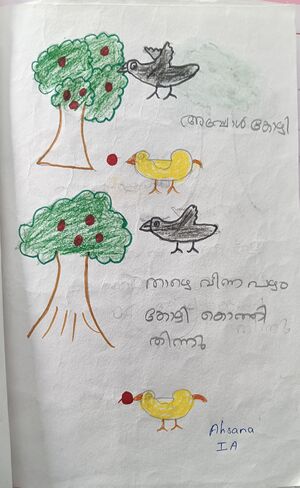 അപ്പോൾ കോഴി
താഴെ വീണ പഴം
കോഴി കൊത്തി
തിന്നു
Ahsana
I A